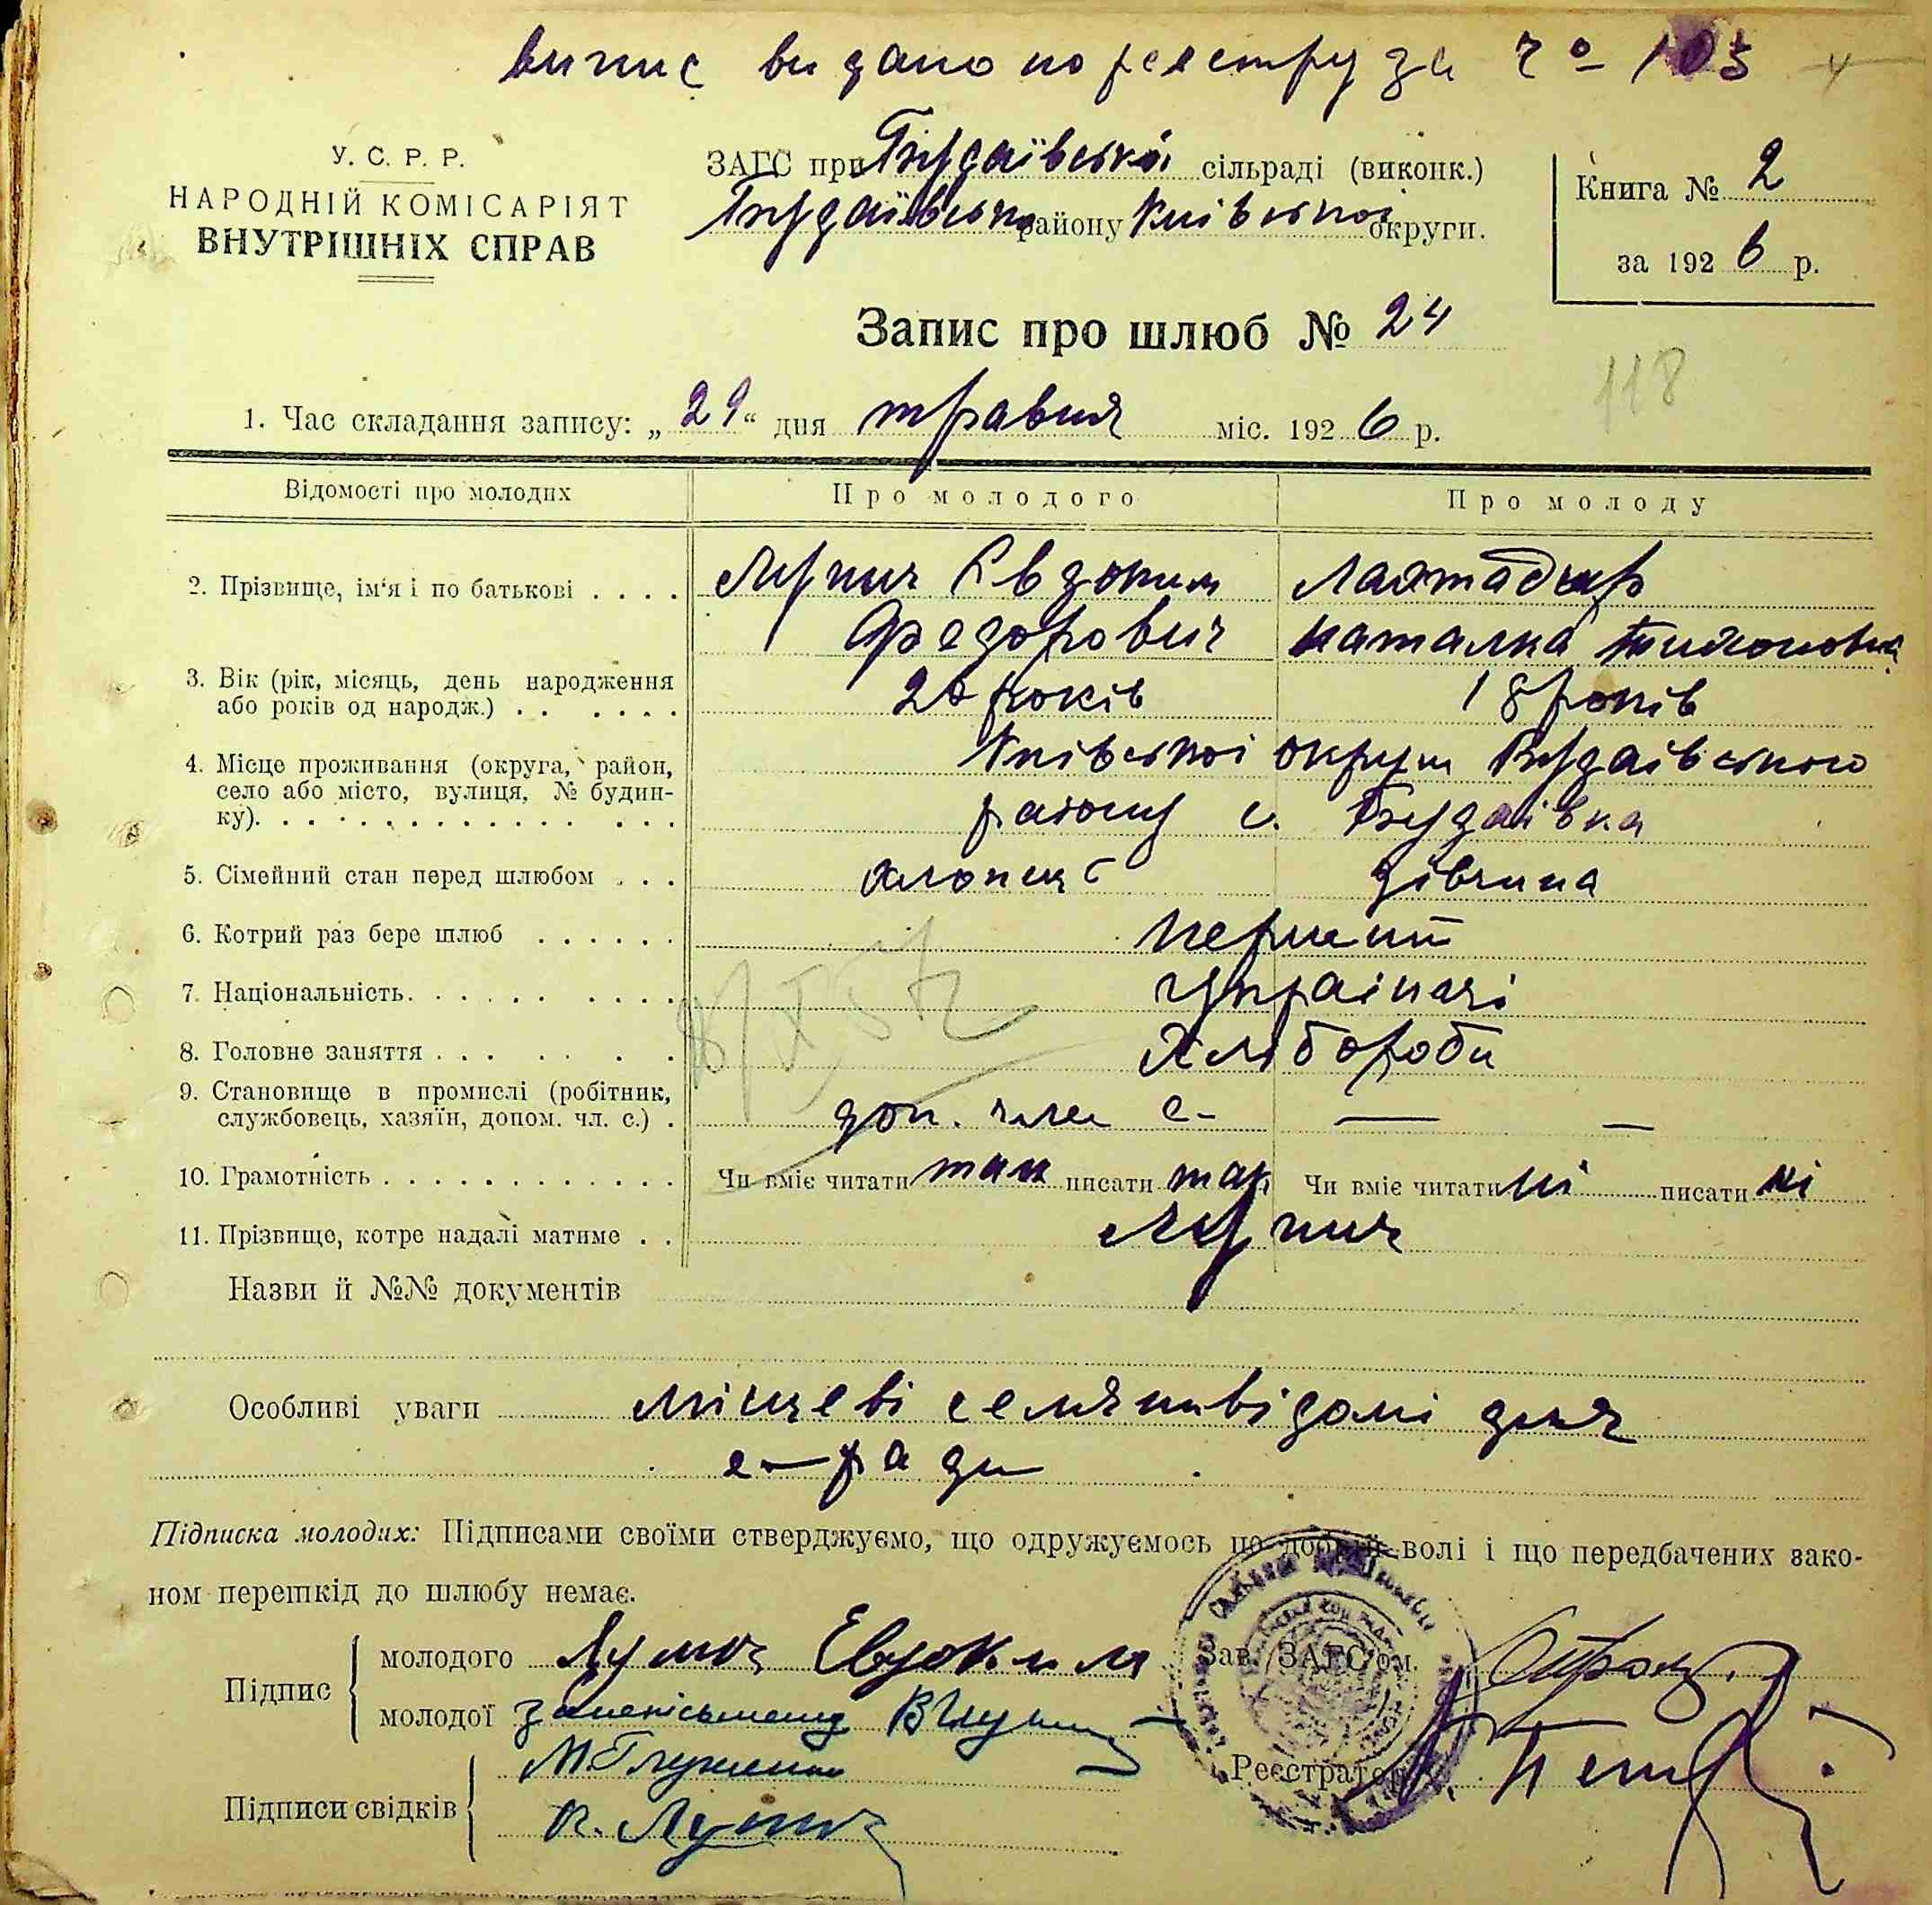 випис видано по реєстру за ч° 105
У. С. Р. Р.
НАРОДНІЙ КОМІСАРІЯТ
ВНУТРІШНІХ СПРАВ
ЗАГС при Будаївській сільраді (виконк.)
Будаївськ району Київської округи.
Книга № 2
за 1926 р.
Запис про шлюб № 24
118
1. Час складання запису: „29“ дня травня міс. 1926 р.
Відомості про молодих Про молодого Про молоду
2. Прізвище, ім‘я і по батькові . . . . Лупич Євдоким Лаштабур
Федорович Наталка Тихоновна
3. Вік (рік, місяць, день народження
або років од народж.) 20 років 18 років
4. Місце проживання (округа, район, Київської округи Будаівського
село або місто, вулиця, № будин-
ку). району с. Будаівка
5. Сімейний стан перед шлюбом . . . хлопець дівчина
6. Котрий раз бере шлюб первий
7. Національність. українці
8. Головне заняття Хлібороби
9. Становище в промислі (робітник,
службовець, хазяїн, допом. чл. с.) . доп. член с- — —
10. Грамотність Чи вміє читати так писати так Чи вміє читати ні писати ні
11. Прізвище, котре надалі матиме . . Лупич
Назви й №№ документів
Особливі уваги Місцеві селяни відомі для
с-ради
Підписка молодих: Підписами своїми стверджуємо, що одружуємось по добрій волі і що передбачених зако-
ном перешкід до шлюбу немає.
Підпис
молодого Лупич Евдоким
молодої
Зав. ЗАГС'ом
Підписи свідків
К. Лупич
Реєстратор